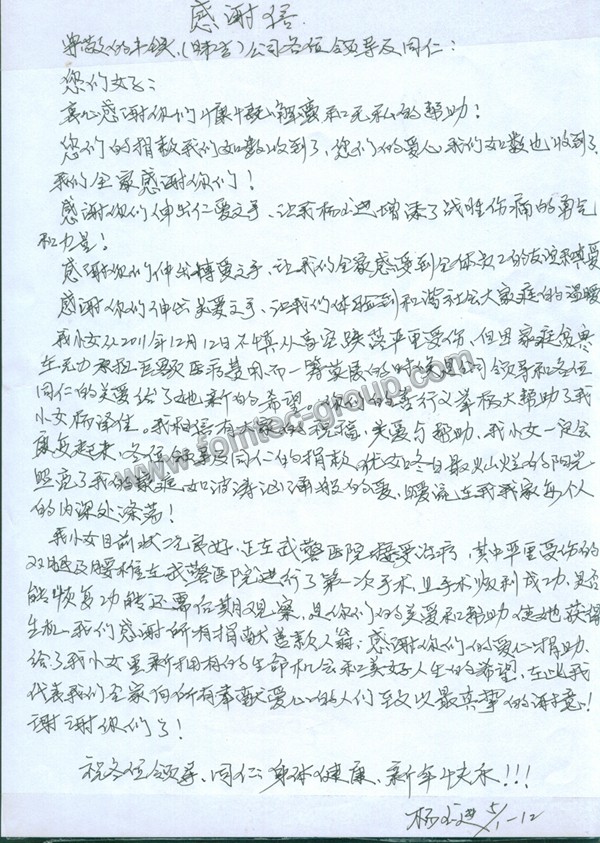 感谢信
尊敬的(味香)公司各位领导及同仁:
您们好:
衷心感谢你们慷慨解囊和无私的帮助!
您们的捐款我们如数收到了,您们的爱心我们如数也收到了,
我们全家感谢你们!
感谢你们伸出仁爱之手,让我杨小进增添了战胜伤痛的勇气
和力量!
感谢你们伸出博爱之手,让我们全家感受到全体员工的友谊和真爱
感谢你们伸出关爱之手,让我们体验到和谐社会大家庭的温暖
我小女从2011年12月12日不慎从高空跌落严重受伤,但因家庭贫寒
在无力承担巨额医疗费用而一筹莫展的时候是公司领导和各位
同仁的关爱给了她新的希望,你们的善行义举极大帮助了我
小女杨泽佳。我相信有大家的祝福,关爱与帮助,我小女一定会
康复起来,各位领导及同仁的捐款,犹如冬日最灿烂的阳光
照亮了我的家庭,如波涛汹涌般的爱,暖流在我我家每个人
的内深处涤荡!
我小女目前状况良好,正在武警医院接受治疗,其中严重受伤的
双腿及腰椎在武警医院进行了第一次手术,且手术顺利成功,是否
能恢复功能还需后期观察,是你们的关爱和帮助使她获得
生机,我们感谢所有捐献善款人士,感谢你们的爱心捐助,
给了我小女重新拥有的生命机会和美好人生的希望,在此我
代表我们全家向所有奉献爱心的人们致以最真挚的谢意!
谢谢你们了!
祝各位领导、同仁 身体健康、新年快乐!!!
杨小进
www.fointec-group.com